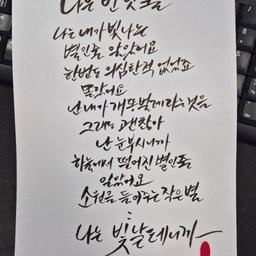 나는 반딧불
나는 내가 빛나는
별인줄 알았어요
한번도 의심한적 없었죠
몰랐어요
난 내가 개똥벌레라는것을
그래도 괜찮아
난 눈부시니까
하늘에서 떨어진 별인줄
알았어요
소원을 들어주는 작은별
나는 빛날테니까